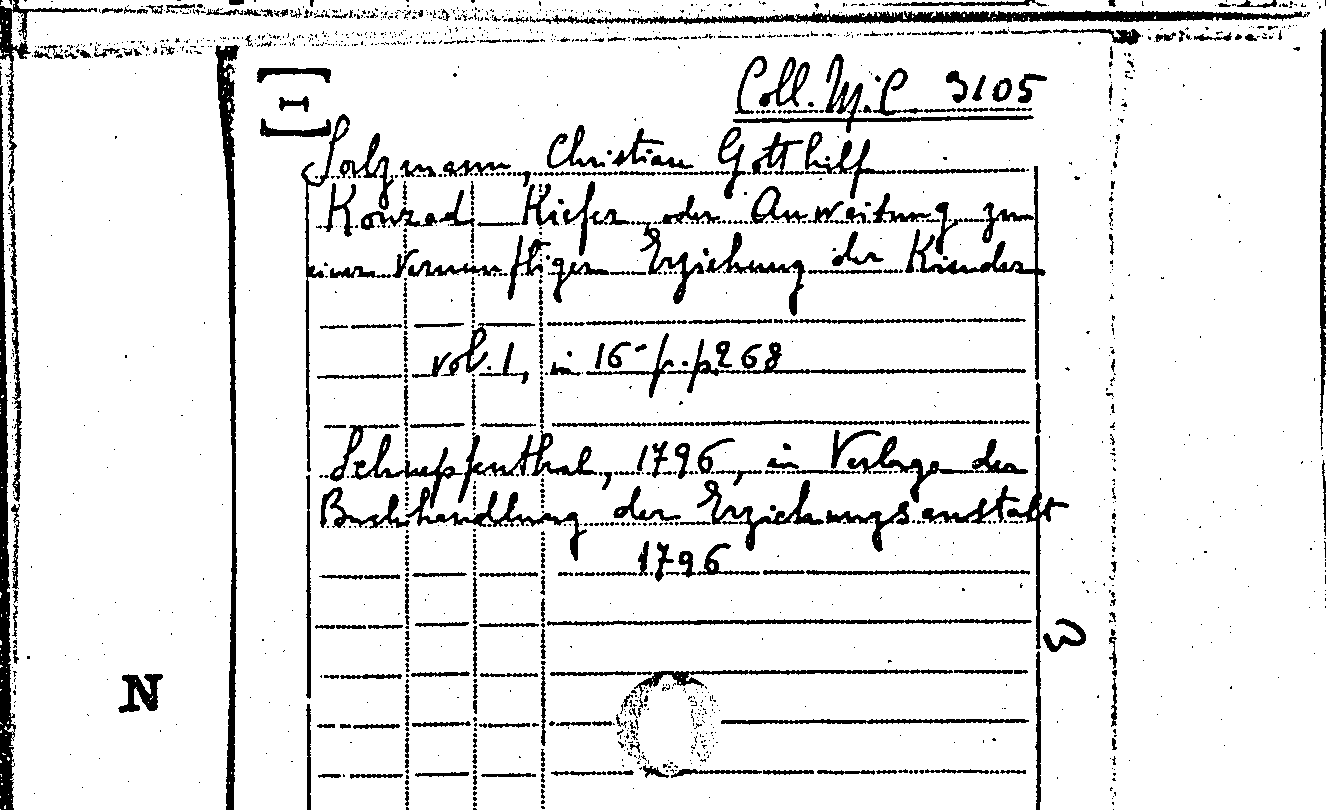 Coll. M. C 3105
Salzmann, Christian Gotthilf
Konrad Kiefer, oder Anweitung zu
einer vernunftigen Erziehung der Kinder
vol. 1, in 16- p.p. 268
Schnepfenthal, 1796, in Verlage der
Buchhandlung der Erziehungsanstalt
1796
N